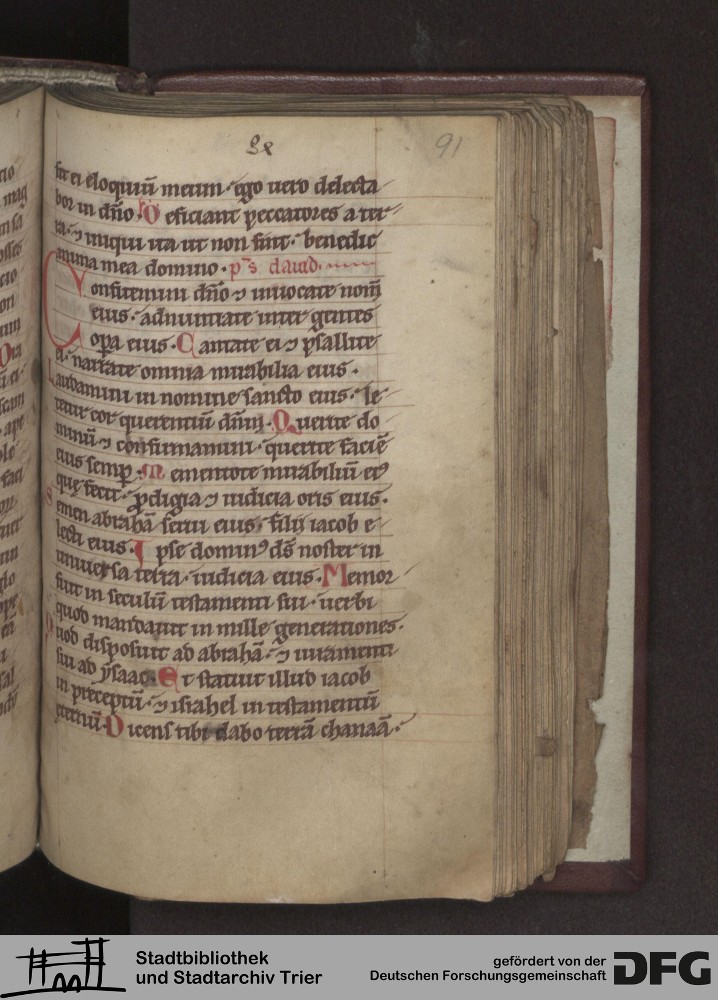 91
sit ei eloquiū meum · ego uero delecta
bor in dño · D eficiant peccatores a ter
ra · ⁊ iniqui ita ut non sint · benedic
anima mea domino · p̄s dauid ·
Confitemini dño ⁊ inuocate nom̄
eius · adnuntiate inter gentes
opa eius · Cantate ei ⁊ psallite
ei · narrate omnia mirabilia eius ·
Laudamini in nomine sancto eius · le
tetur cor querentiū dñm · Querite do
minū ⁊ confirmamini · querite faciē
eius semp · Mementote mirabiliū eiꝰ
quę fecit · ꝓdigia ⁊ iudicia oris eius ·
Semen abrahā serui eius · filij iacob e
lecti eius · Ipse dominꝰ dš noster in
uniuersa terra · iudicia eius · Memor
fuit in seculū testamenti sui · uerbi
quod mandauit in mille generationes ·
Quod disposuit ad abrahā · ⁊ iuramenti
sui ad ysaac · Et statuit illud iacob
in preceptū · ⁊ israhel in testamentū
eternū · Dicens tibi dabo terrā chanaā ·
Stadtbibliothek
und Stadtarchiv Trier
gefördert von der
Deutschen Forschungsgemeinschaft
DFG